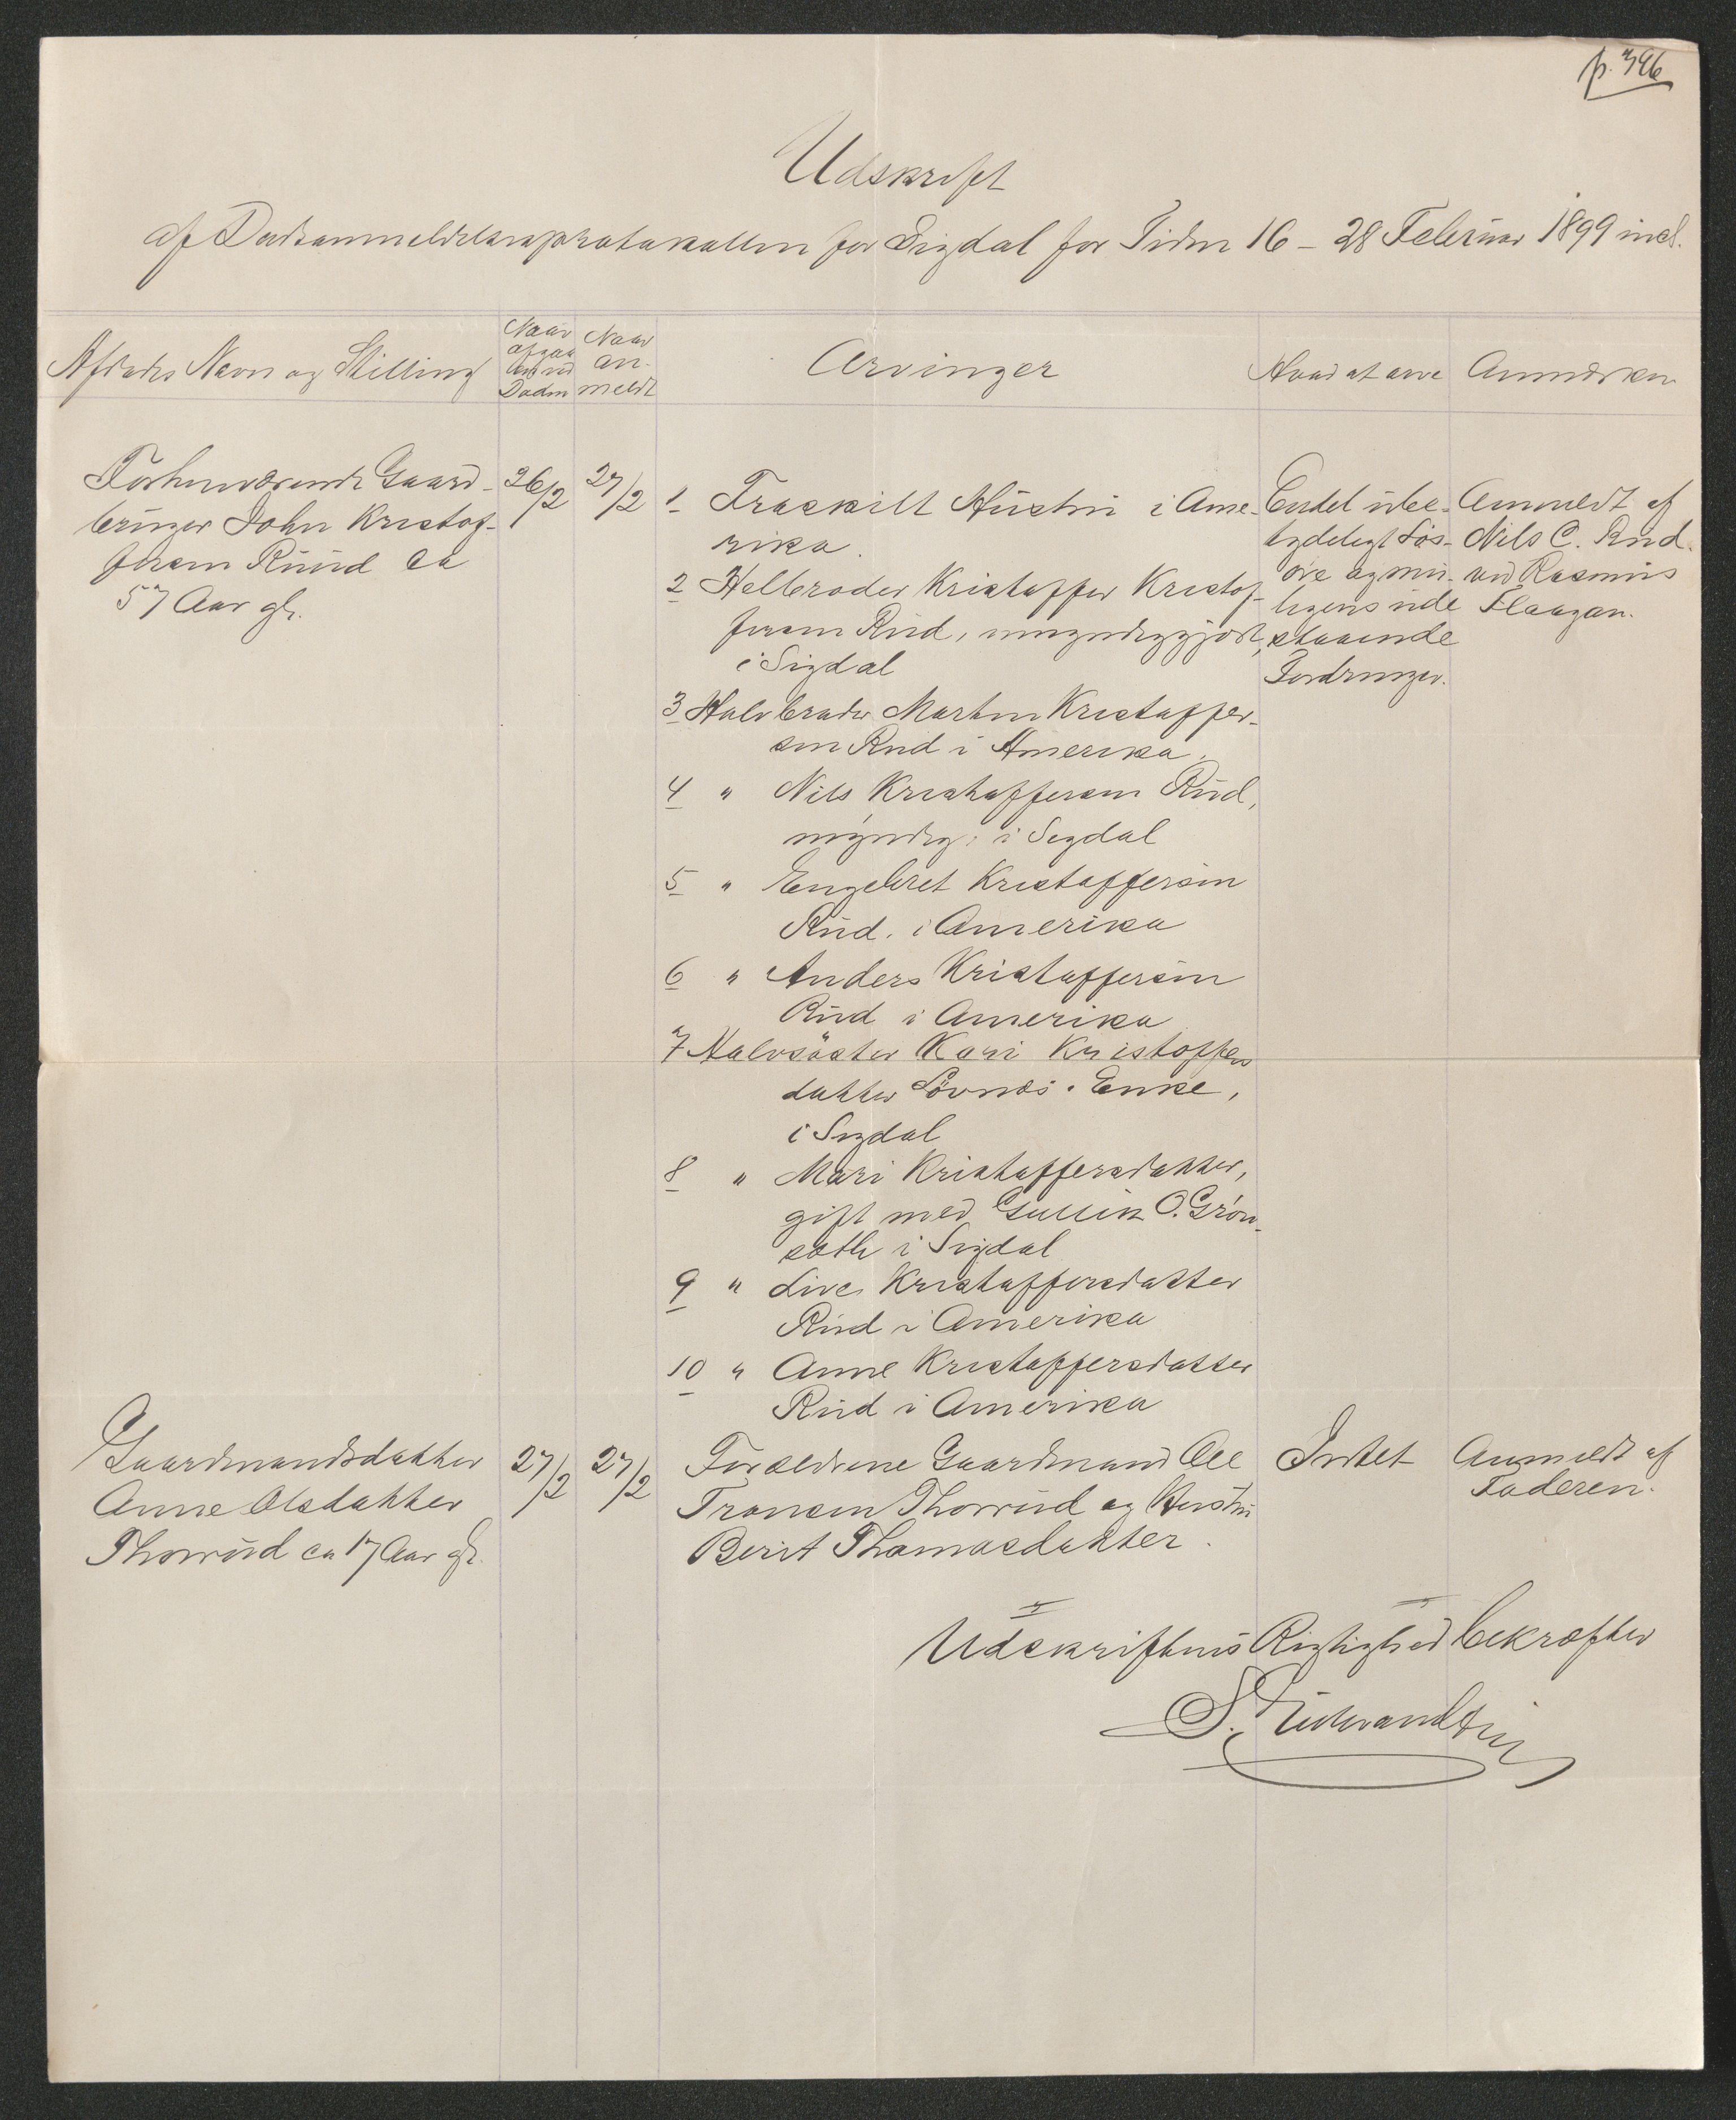 p. 396
Udskrift
af Dødsanmeldelsesprotokollen for Sigdal for Tiden 16 – 28 Februar 1899 incl.
Afdødes Navn og Stilling
Naar
afgaa
en ved
Døden
Naar
an-
meldt
Arvinger
Hvad at arve
Anmærkn
Forhenværende Gaard-
bruger John Kristof-
fersen Ruud ca
57 Aar gl.
26/2
27/2
1 Fraskilt Hustru i Ame-
rika.
2 Helbroder Kristoffer Kristof-
fersen Rud, umyndiggjort,
i Sigdal
3 Halvbroder Martin Kristoffer-
sen Rud i Amerika,
4 " Nils Kristoffersen Rud,
myndig, i Sigdal
5 " Engebret Kristoffersen
Rud. i Amerika
6 " Anders Kristoffersen
Rud i Amerika
7 Halvsøster Kari Kristoffers
datter Løvnes. Enke,
i Sigdal
8 " Mari Kristoffersdatter,
gift med Gullik O. Grøn-
sæth i Sigdal
9 " Live Kristoffersdatter
Rud i Amerika
10 " Anne Kristoffersdatter
Rud i Amerika
Endel ube-
tydeligt Løs-
øre og mu-
ligens ude
staaende
Fordringer.
Anmeldt af
Nils C. Rud.
ved Rasmus
Flaagan.
Gaardmandsdatter
Anne Olsdatter
Thorrud ca 17 Aar gl.
27/2
27/2
Forældrene Gaardmand Ole
Tronsen Thorrud og Hustru
Berit Thomasdatter.
Intet
Anmeldt af
Faderen.
Udskriftens Rigtighed bekræfter
S.